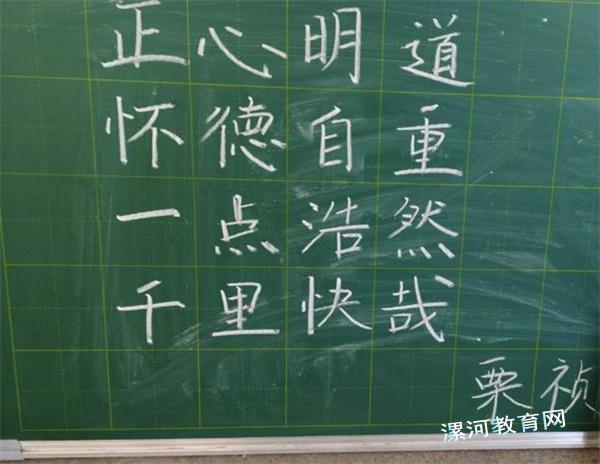 正心明道
怀德自重
一点浩然
千里快哉
栗祯
漯河教育网